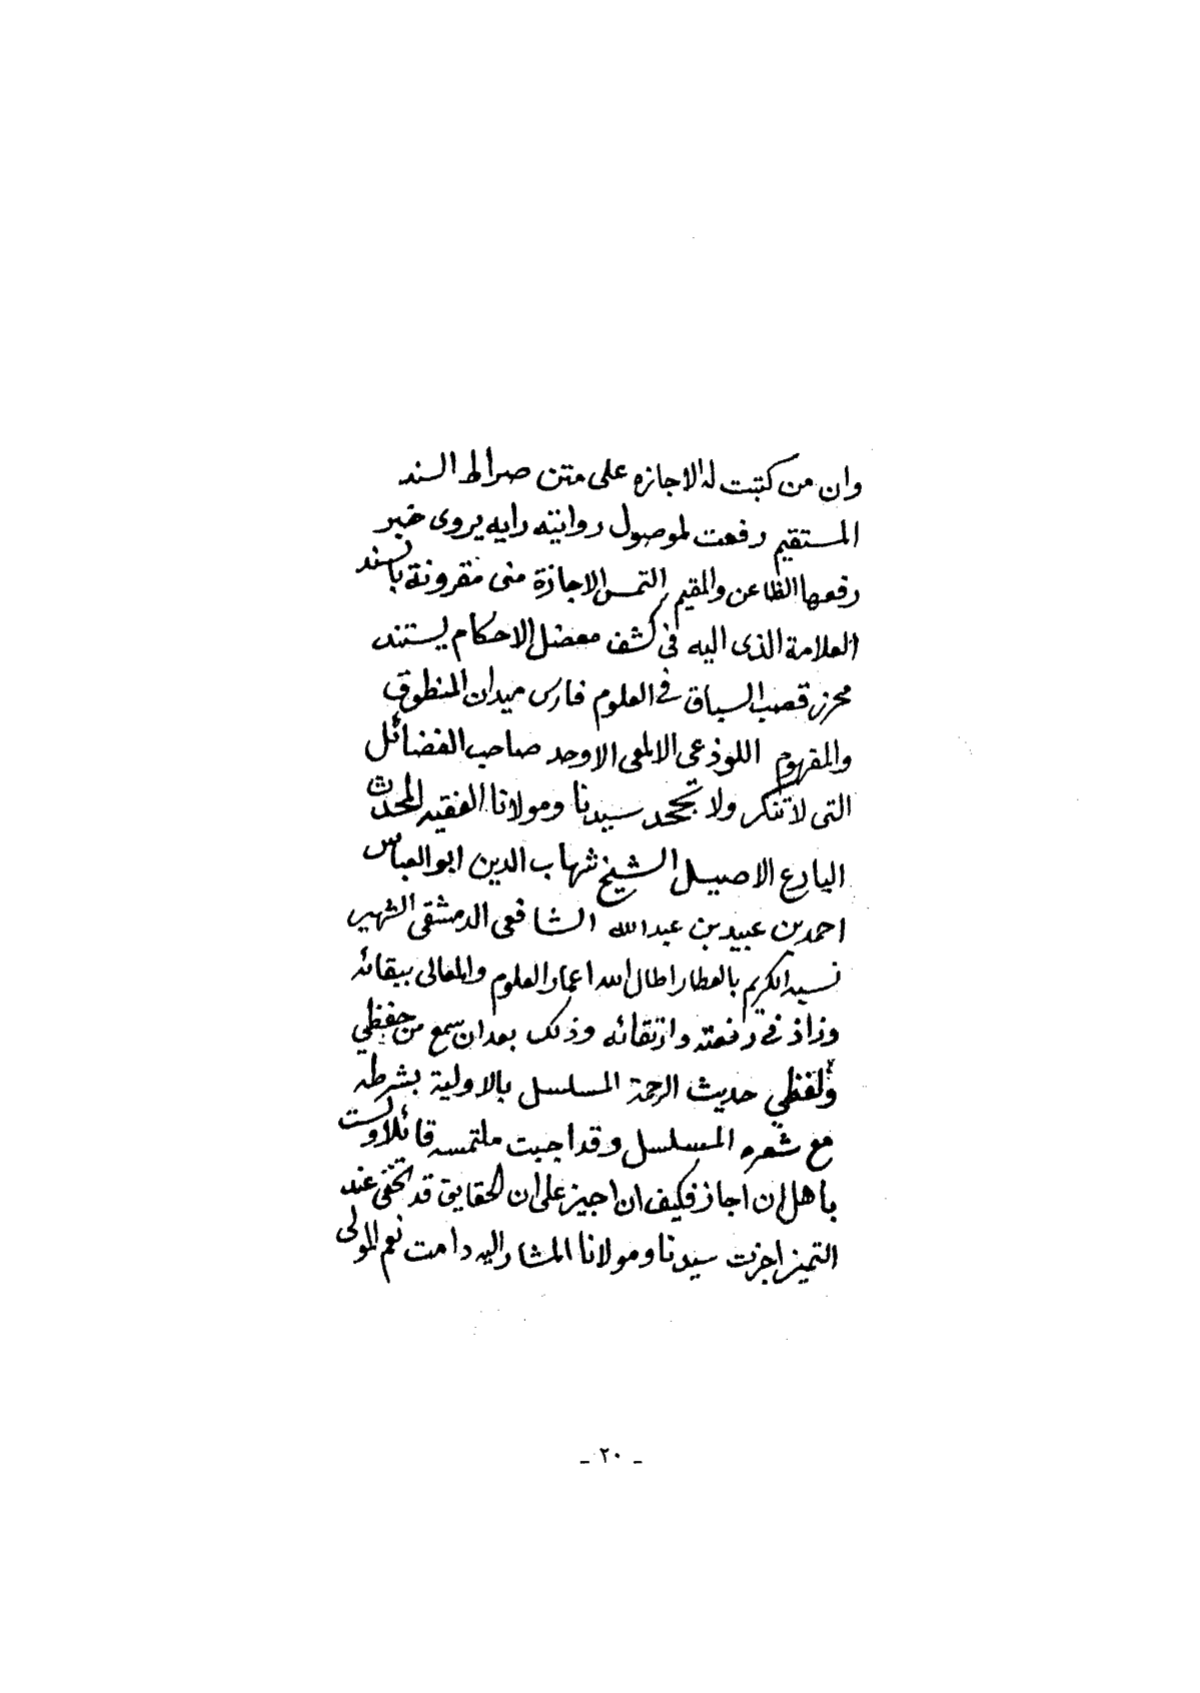 وان من كتبت له الاجازه على متن صراط السند
المستقيم رفعت لموصول روايته رايه يروى خبر
رفعها الظاعن والمقيم التمس الاجازة منى مقرونة بالسند
العلامة الذى اليه فى كشف معضل الاحكام يستند
محرز قصب السباق في العلوم فارس ميدان المنطوق
والمفهوم اللوذعى الالمعى الاوحد صاحب الفضائل
التى لا تنكر ولا تجحد سيدنا ومولانا الفقيه المحدث
البارع الاصيل الشيخ شهاب الدين ابو العباس
احمد بن عبيد بن عبد الله الشافعى الدمشقى الشهير
نسبه الكريم بالعطار اطال الله اعمار العلوم والمعالى ببقائه
وزاد في رفعته وارتقائه وذلك بعد ان سمع من حفظي
ولفظي حديث الرحمة المسلسل بالاولية بشرطه
مع شعره المسلسل وقد اجبت ملتمسه قائلا ولست
باهل ان اجاز فكيف ان اجيز على ان الحقايق قد تخفى عند
التميز اجزت سيدنا ومولانا المشار اليه دامت نعم المولى
- ٢٠ -